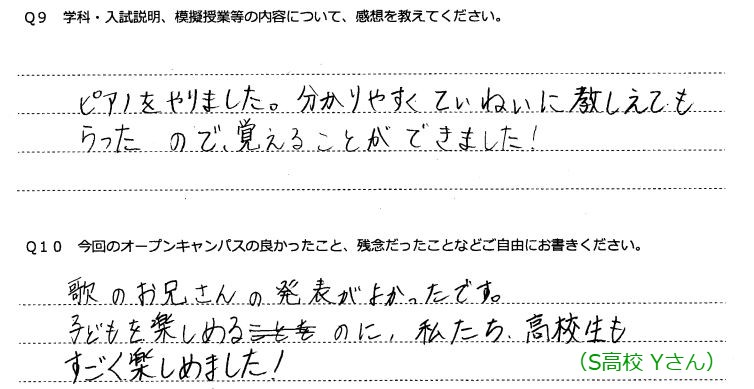 Q9 学科・入試説明、模擬授業等の内容について、感想を教えてください。
ピアノをやりました。分かりやすくていねいに教しえても
らったので、覚えることができました！
Q10 今回のオープンキャンパスの良かったこと、残念だったことなどご自由にお書きください。
歌のお兄さんの発表がよかったです。
子どもを楽しめるのに、私たち、高校生も
すごく楽しめました！
（S高校 Yさん）